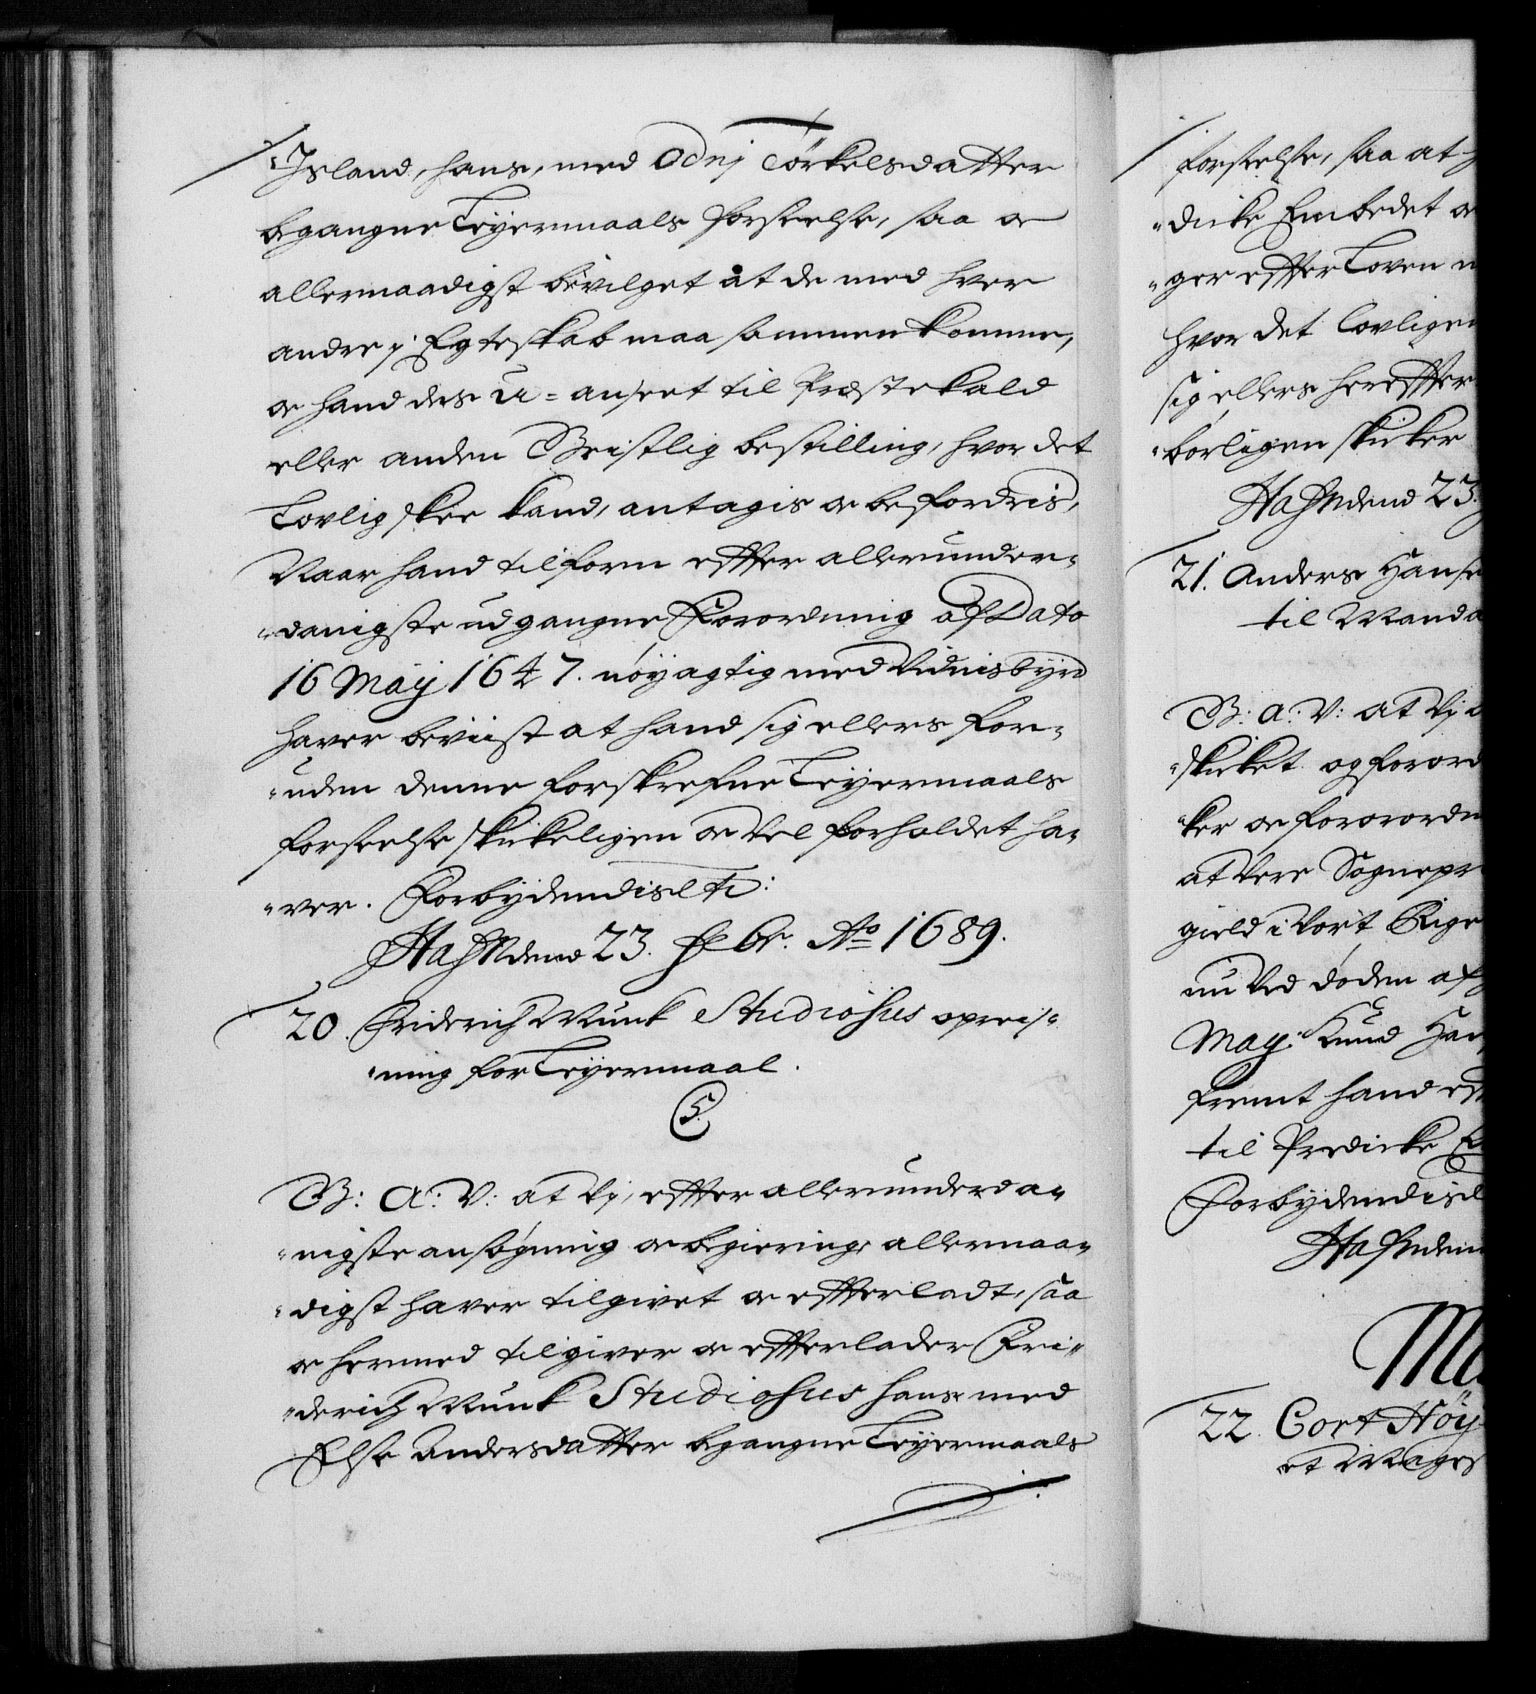 Island, hans, med Odnj Törkelsdatter
begangne Leÿermaals forseelse, saa oc
allernaadigst bevilget at de med hver
andre j Egteskab maa sammenkomme,
oc hand des u-anseet til Præstekald
eller anden Geistlig bestilling, hvor det
Lovlig skee kand, antagis oc befordris,
Naar hand tilforn effter allerunder-
danigste udgangne Forordning af Dato
16 Maÿ 1647. nöÿagtig med Vidnisbÿrd
haver beviist at hand sig ellers for-
uden denne forskrefne Leÿermaals
forseelse skickeligen oc vel forholdet ha-
ver. Forbÿdendis etc:
Hafn dend 23. Febr. Ao 1689.
20. Friderich Munk Studiosus opreis-
ning for Leÿermaal.
G. A. V: at Vj, effter allerunderda-
nigste ansögning oc begiering, allernaa-
digst haver tilgivet oc effterladt, saa
oc hermed tilgiver oc effterlader Fri-
derich Munk Studiosus hans med
Else Andersdatter begangne Leÿermaals
forseelse, saa at
dicke Embedet oc
ger effter Loven
hvor det Lovligen
sig ellers hereffter
börligen skicker
Hafn dend 23.
21. Anders Hans
til Mand
G: A: V: at Vj
skicket og forord
ker oc forordn
at vere Sognepr
gield i Vort Rige
nu ved döden af
Maÿ. Knud Han
fremt hand eff
til Predicke E
Forbÿdendis
Hafn den
Ma
22. Cort Höÿ
et Mages